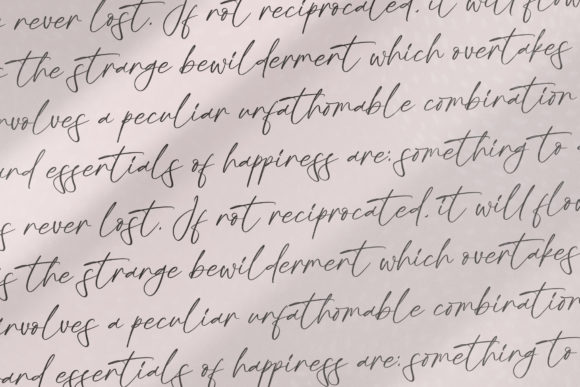 s never lost. If not reciprocated, it will flow
the strange bewilderment which overtakes
involves a peculiar unfathomable combination
and essentials of happiness are: something to
s never lost. If not reciprocated, it will flow
is the strange bewilderment which overtakes
involves a peculiar unfathomable combination
and essentials of happiness are: something to